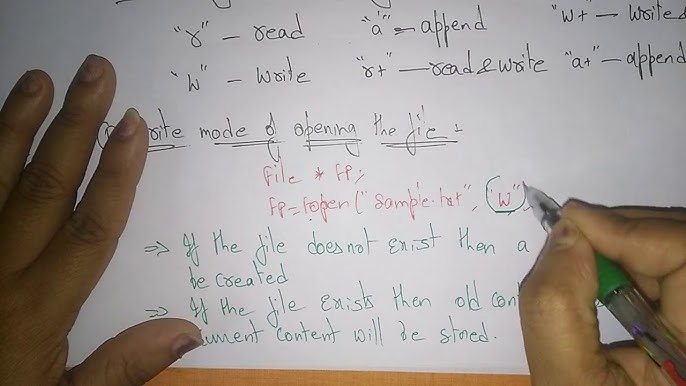 "r" — read "a" — append "w+ — write &
"w" — write "r+" — read & write "a+" — append
write mode of opening the file :
File * FP;
FP = fopen("sample.txt", "w"
⇒ If the file does not exist then a
be created
⇒ If the file exists then old cont
ument content will be stored.